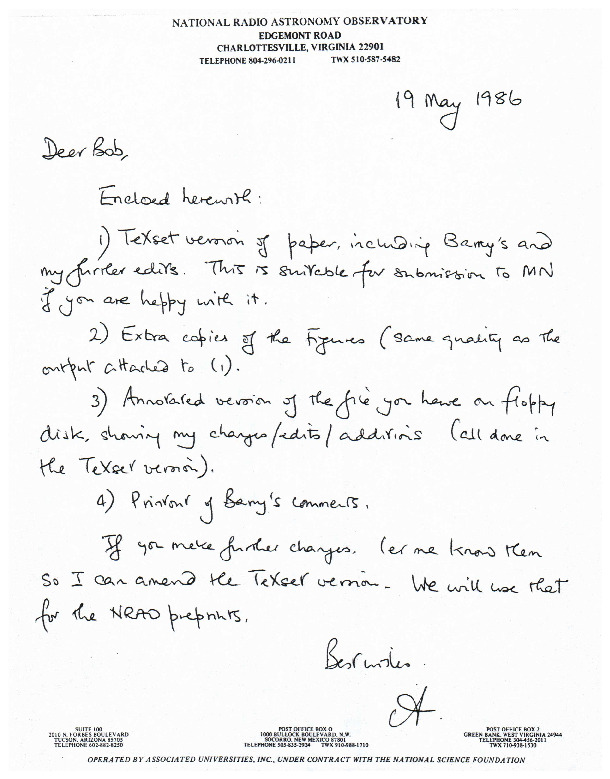 NATIONAL RADIO ASTRONOMY OBSERVATORY
EDGEMONT ROAD
CHARLOTTESVILLE, VIRGINIA 22901
TELEPHONE 804-296-0211 TWX 510-587-5482
19 May 1986
Dear Bob,
Enclosed herewith:
1) TeXset version of paper, including Barry's and
my further edits. This is suitable for submission to MN
if you are happy with it.
2) Extra copies of the Figures (same quality as the
output attached to (1).
3) Annotated version of the file you have on floppy
disk, showing my changes/edits/additions (all done in
the TeXset version).
4) Printout of Barry's comments.
If you make further changes, let me know them
so I can amend the TeXset version. We will use that
for the NRAO preprints.
Best wishes.
A.
SUITE 100
2010 N. FORBES BOULEVARD
TUCSON, ARIZONA 85705
TELEPHONE 602-882-8250
POST OFFICE BOX O
1000 BULLOCK BOULEVARD, N.W.
SOCORRO, NEW MEXICO 87801
TELEPHONE 505-835-2924 TWX 910-988-1710
POST OFFICE BOX 2
GREEN BANK, WEST VIRGINIA 24944
TELEPHONE 304-456-2011
TWX 710-938-1530
OPERATED BY ASSOCIATED UNIVERSITIES, INC., UNDER CONTRACT WITH THE NATIONAL SCIENCE FOUNDATION